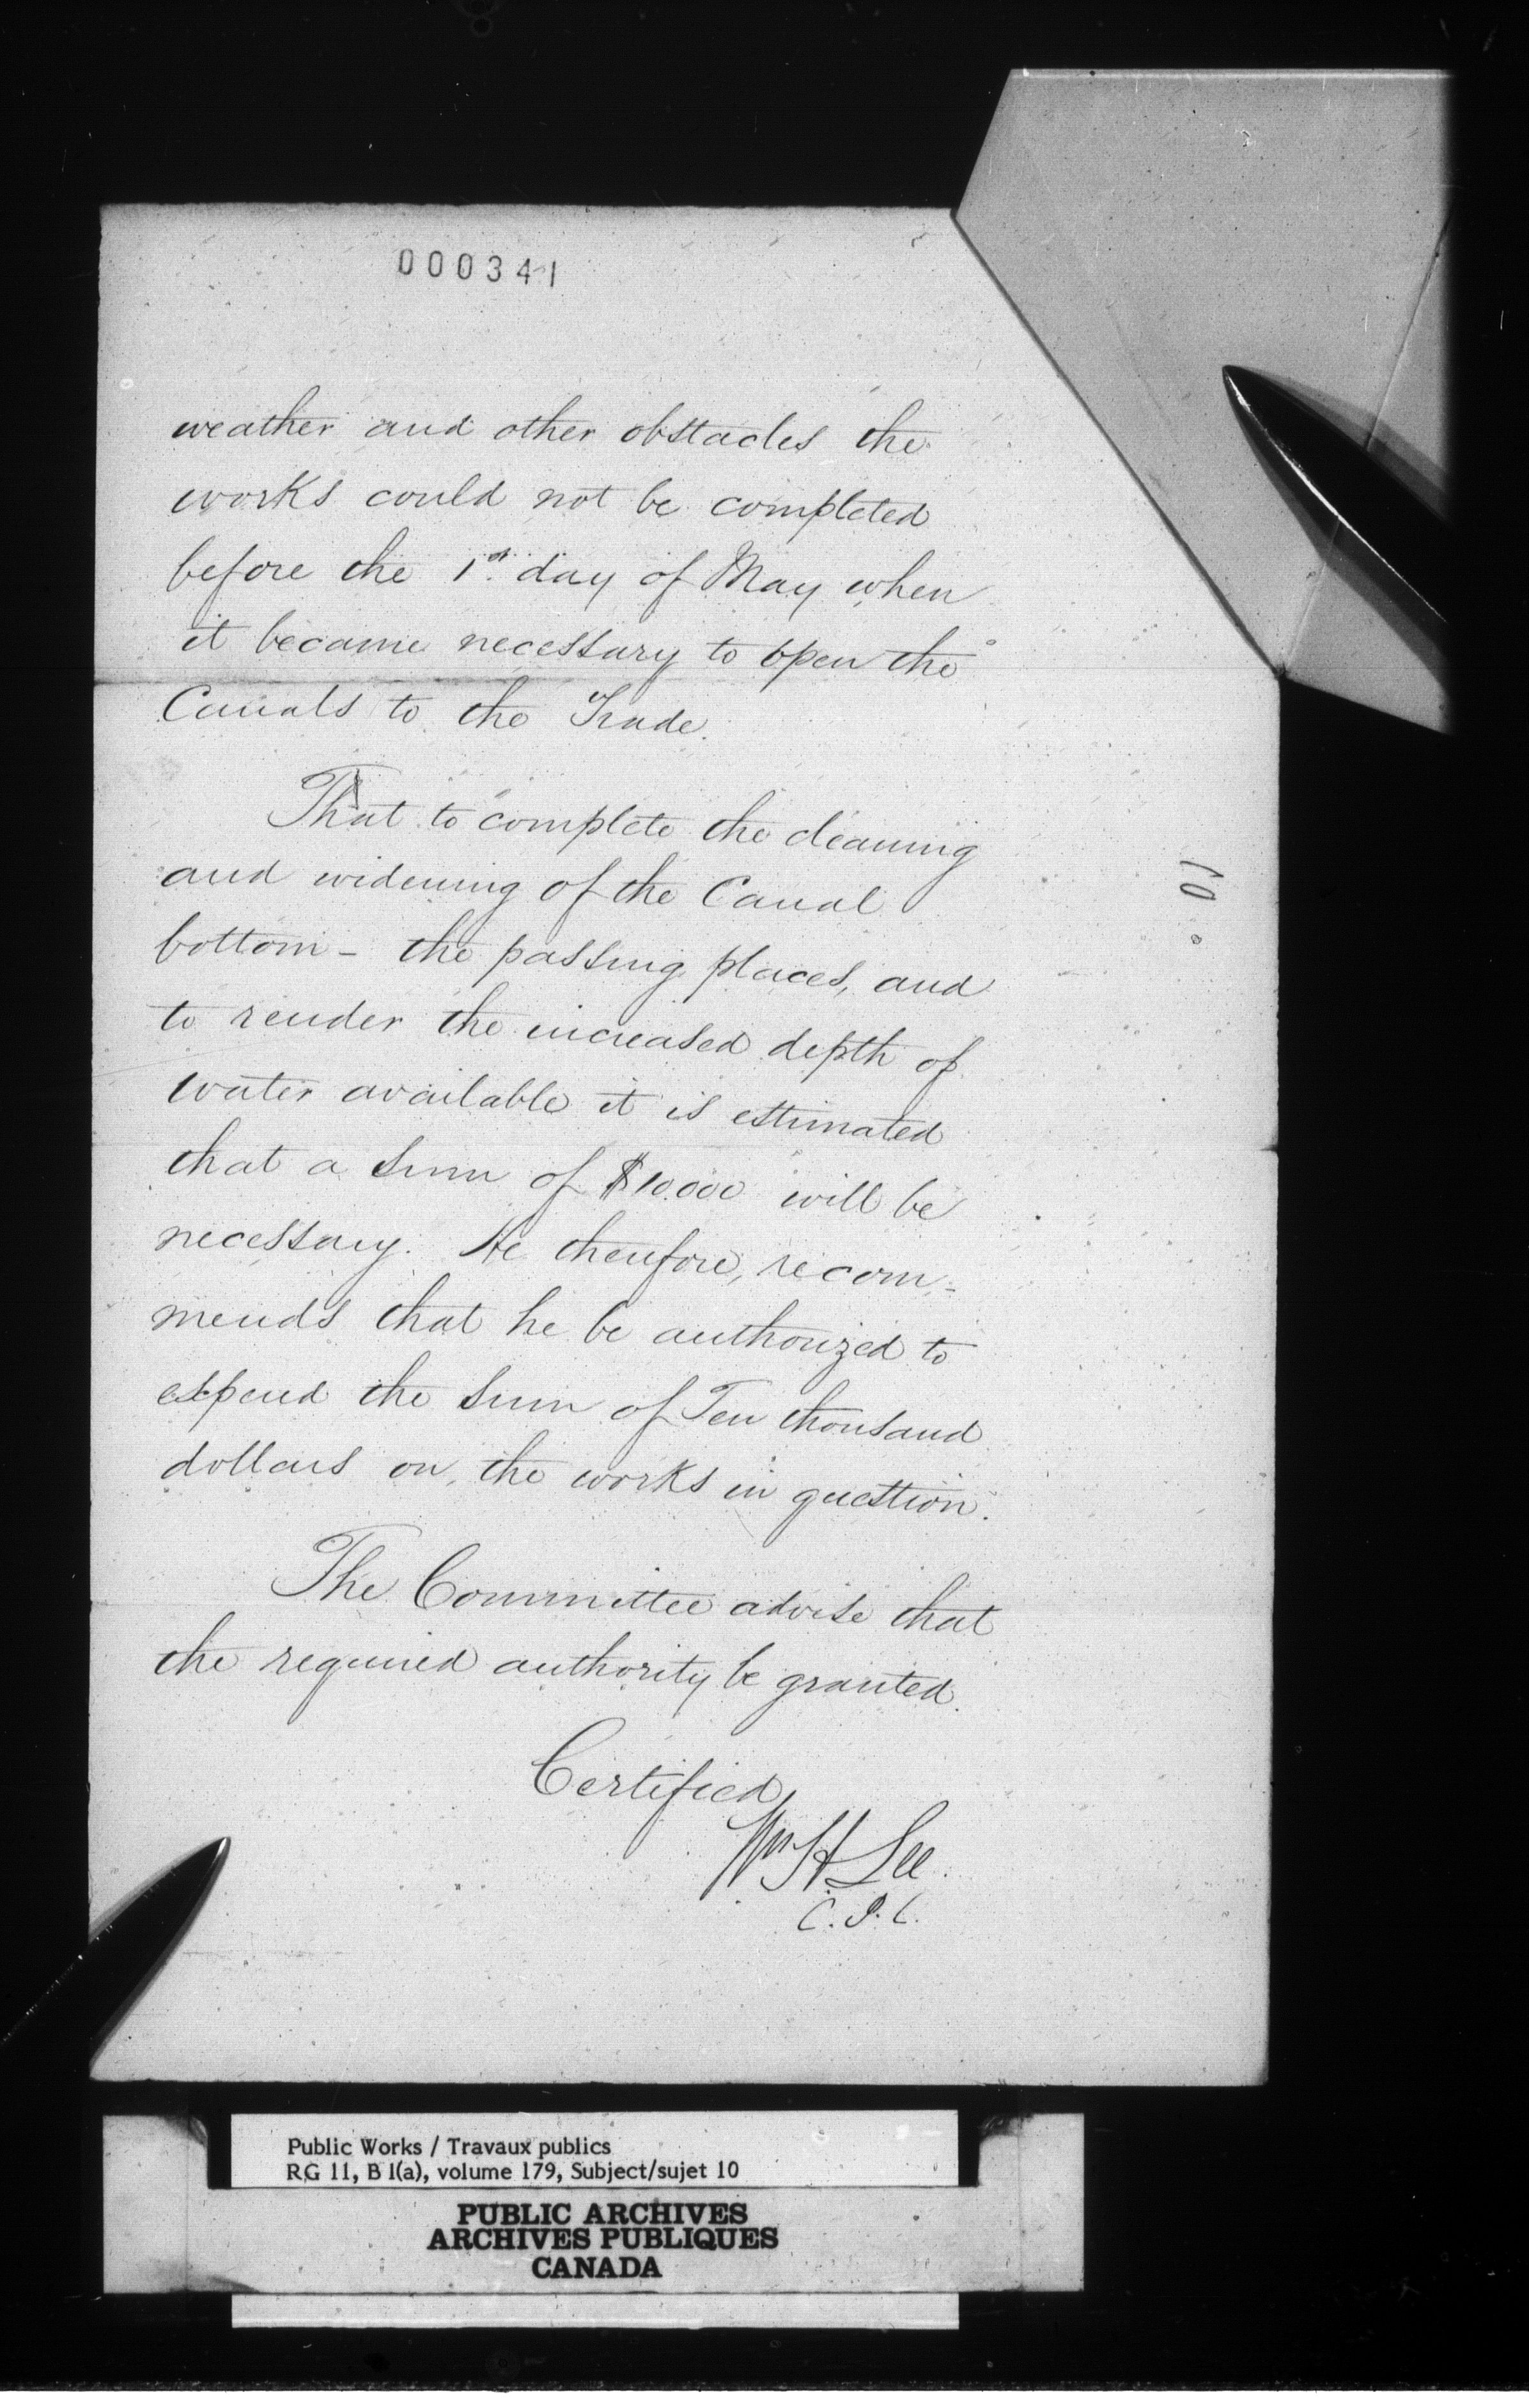 000341
weather and other obstacles the
works could not be completed
before the 1st. day of May when
it became necessary to open the
Canals to the Trade.
That to complete the cleaning
and widening of the Canal
bottom - the passing places, and
to render the increased depth of
water available it is estimated
that a sum of $10.000 will be
necessary. He therefore, recom-
mends that he be authorized to
expend the sum of Ten thousand
dollars on the works in question.
The Committee advise that
the required authority be granted.
Certified
Wm H Lee
C.P.C.
10
Public Works / Travaux publics
RG 11, B 1(a), volume 179, Subject/sujet 10
PUBLIC ARCHIVES
ARCHIVES PUBLIQUES
CANADA